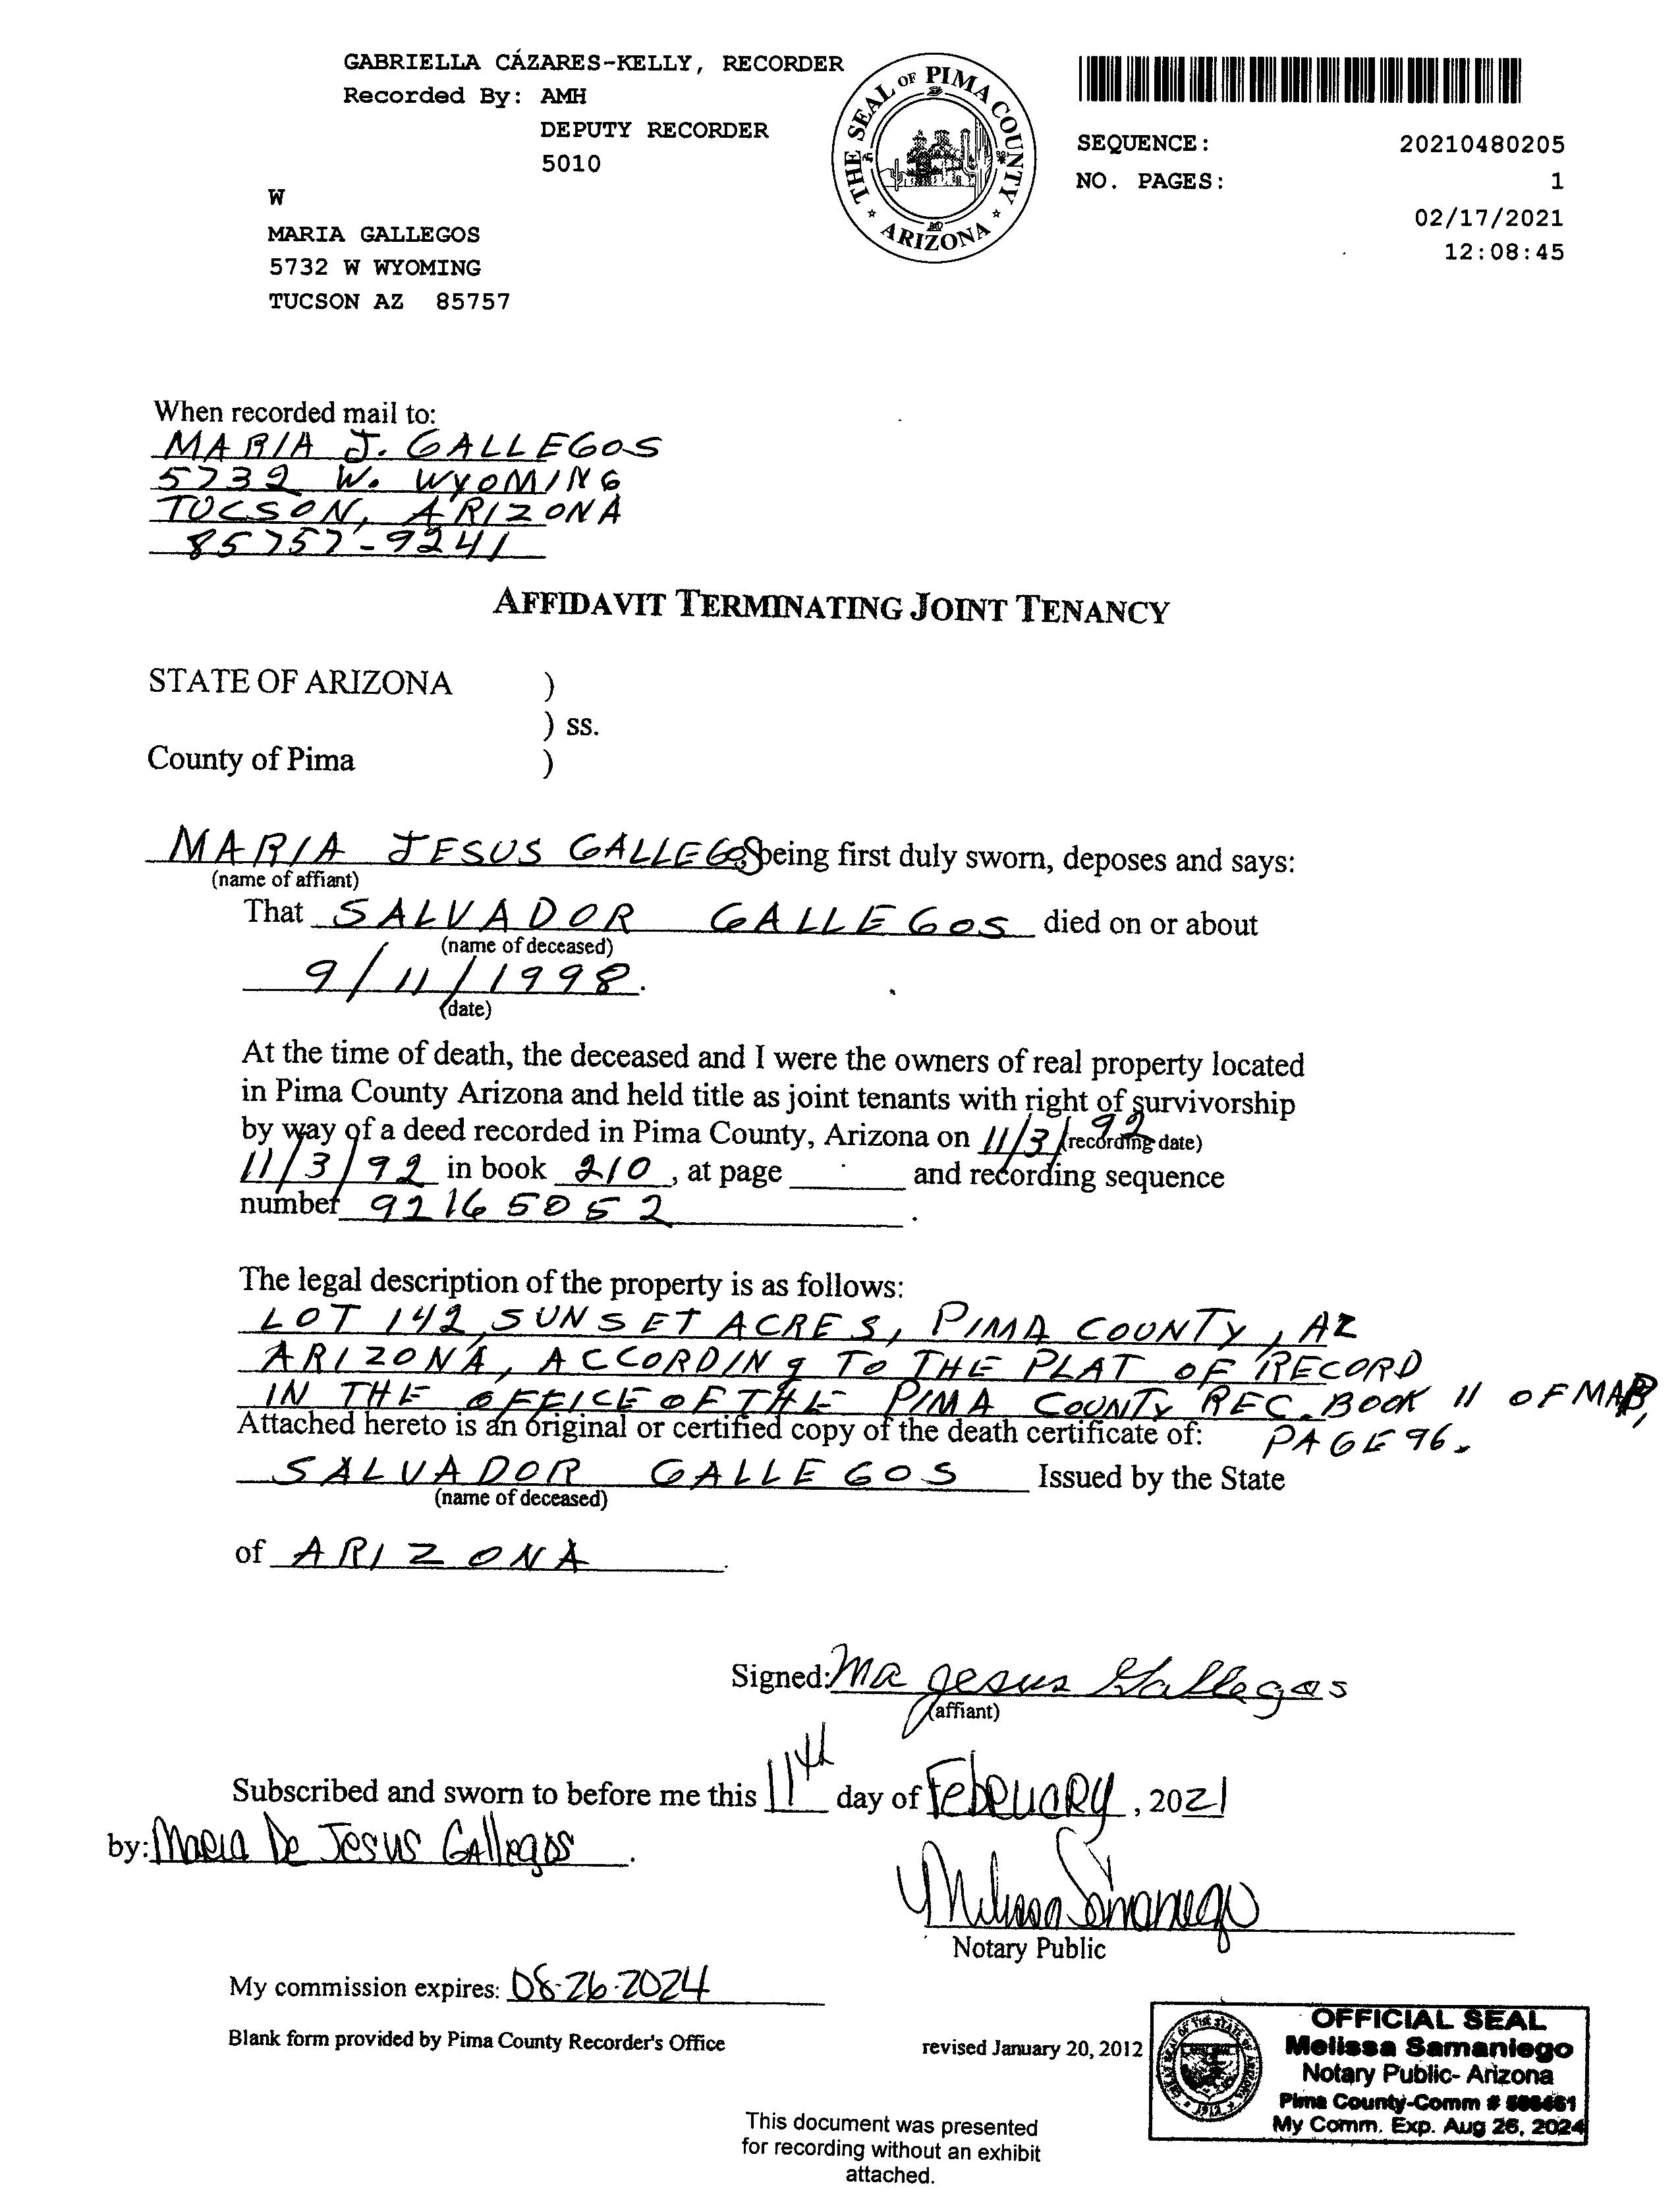 GABRIELLA CÁZARES-KELLY, RECORDER
Recorded By: AMH
DEPUTY RECORDER
5010
THE SEAL OF PIMA COUNTY
ARIZONA
SEQUENCE: 20210480205
NO. PAGES: 1
02/17/2021
12:08:45
W
MARIA GALLEGOS
5732 W WYOMING
TUCSON AZ 85757
When recorded mail to:
MARIA J. GALLEGOS
5732 W. WYOMING
TUCSON, ARIZONA
85757-9241
AFFIDAVIT TERMINATING JOINT TENANCY
STATE OF ARIZONA )
) ss.
County of Pima )
MARIA JESUS GALLEGOS being first duly sworn, deposes and says:
(name of affiant)
That SALVADOR GALLEGOS died on or about
(name of deceased)
9/11/1998.
(date)
At the time of death, the deceased and I were the owners of real property located
in Pima County Arizona and held title as joint tenants with right of survivorship
by way of a deed recorded in Pima County, Arizona on 11/3/92 (recording date)
11/3/92 in book 210, at page and recording sequence
number 92165052.
The legal description of the property is as follows:
LOT 142, SUNSET ACRES, PIMA COUNTY, AZ
ARIZONA, ACCORDING TO THE PLAT OF RECORD
IN THE OFFICE OF THE PIMA COUNTY REC. BOOK 11 OF MAP,
Attached hereto is an original or certified copy of the death certificate of: PAGE 96.
SALVADOR GALLEGOS Issued by the State
(name of deceased)
of ARIZONA.
Signed: Ma Jesus Gallegos
(affiant)
Subscribed and sworn to before me this 11th day of February, 2021
by: Maria De Jesus Gallegos.
Melissa Samaniego
Notary Public
My commission expires: 08-26-2024
Blank form provided by Pima County Recorder's Office revised January 20, 2012
OFFICIAL SEAL
Melissa Samaniego
Notary Public- Arizona
Pima County-Comm #
My Comm. Exp. Aug 26, 2024
This document was presented
for recording without an exhibit
attached.